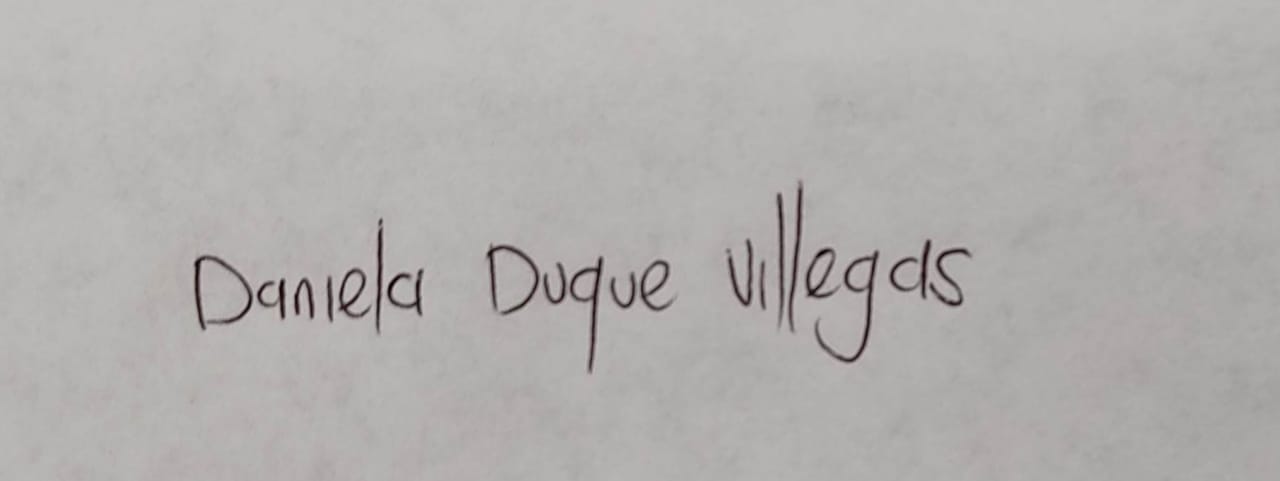 Daniela Duque Villegas